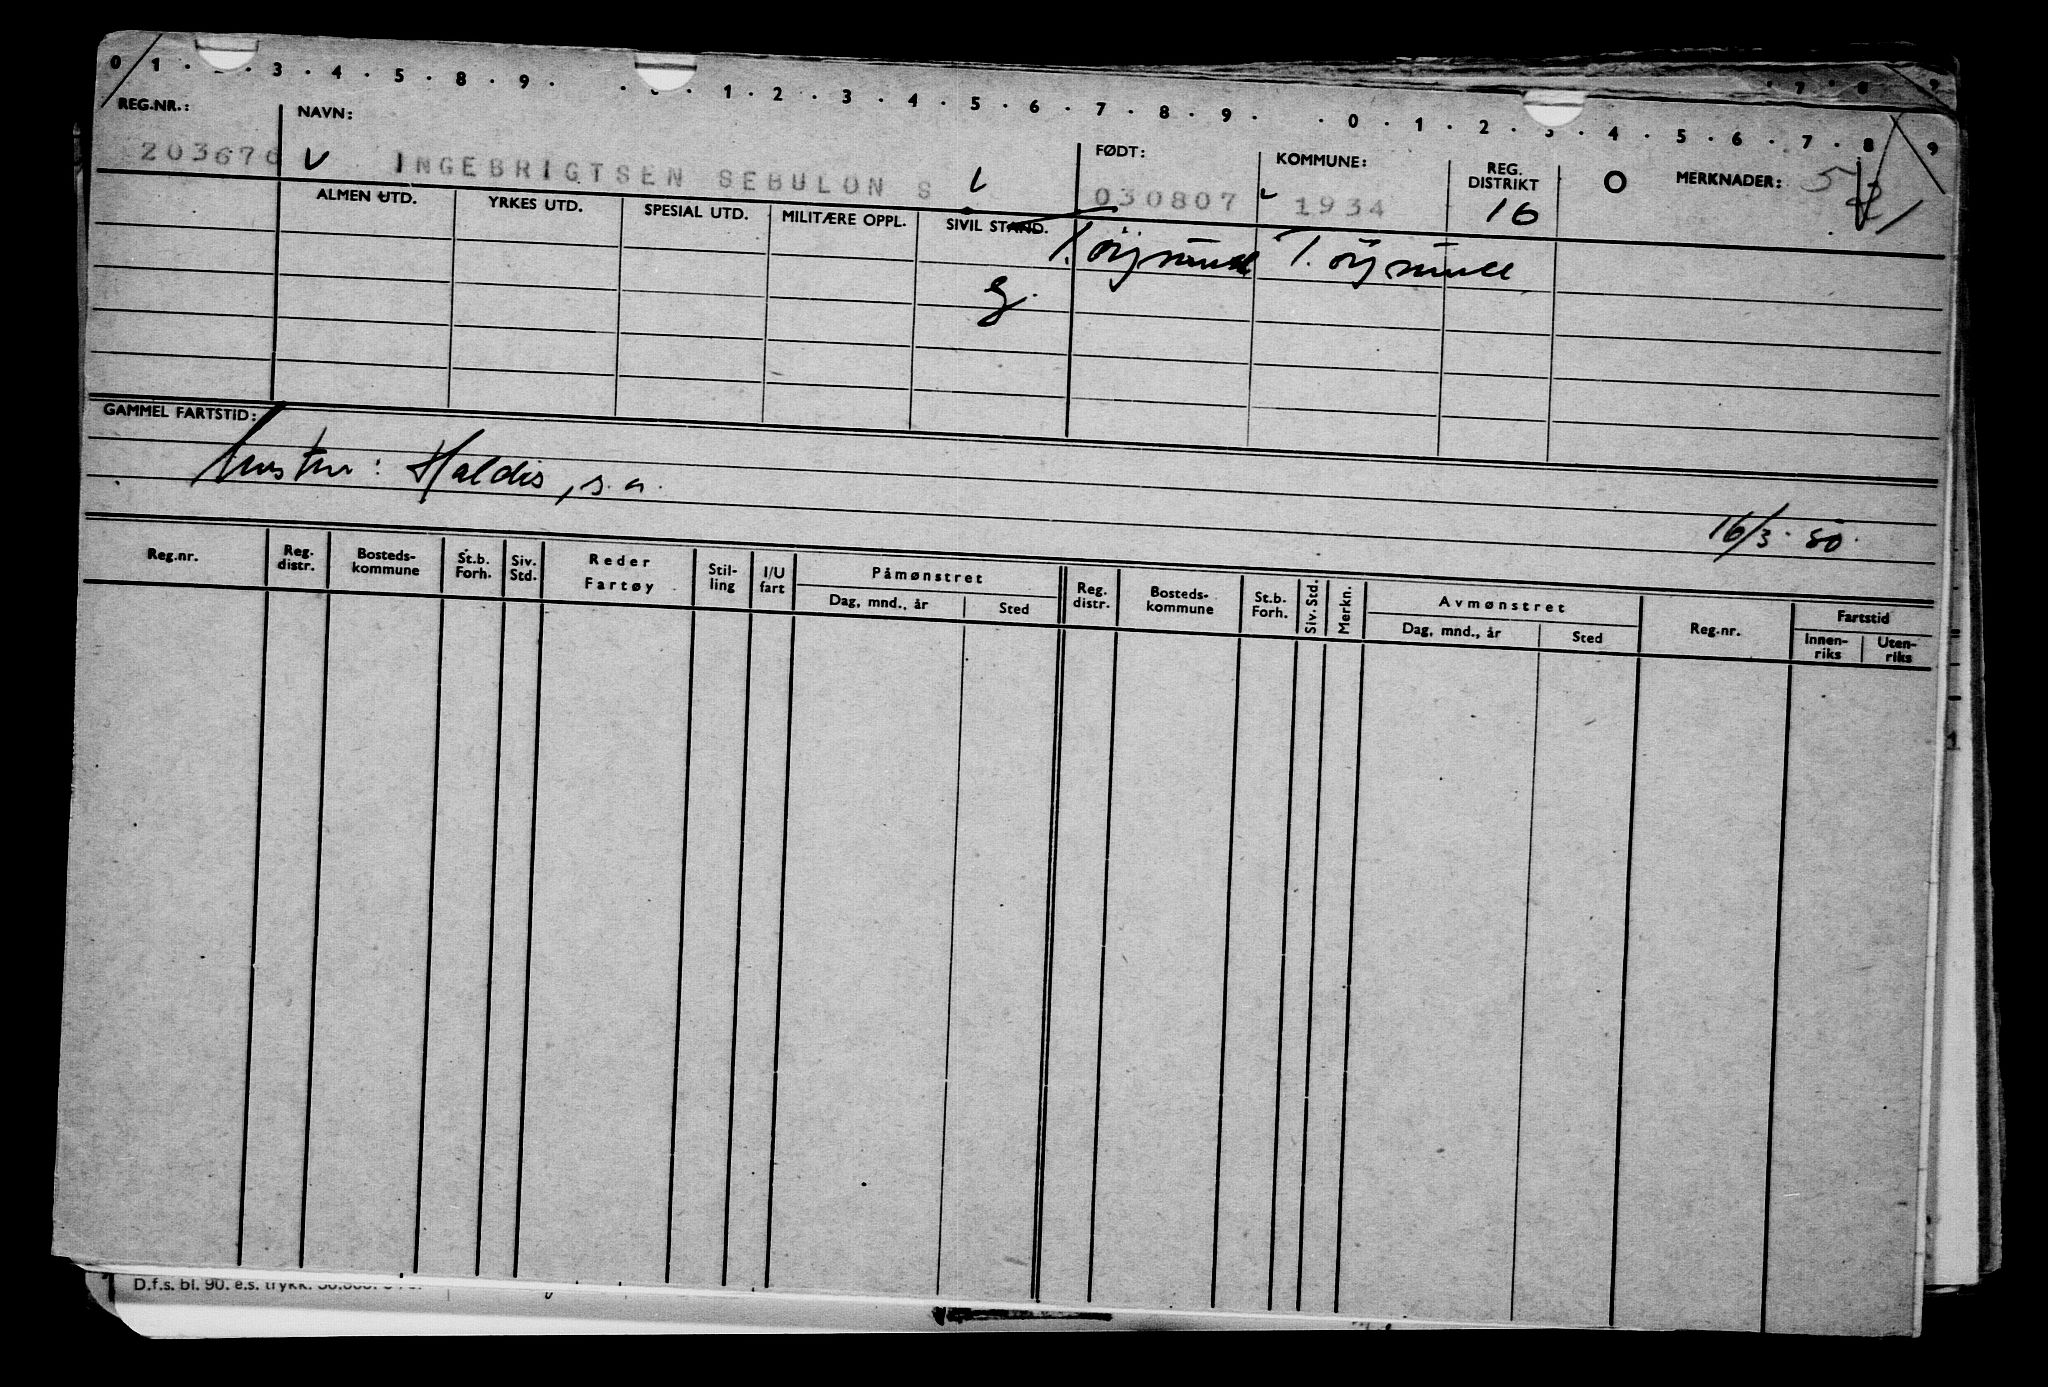 0 1 · · 3 · 4 · 5 · 8 · 9 · · · 1 · 2 · 3 · 4 · 5 · 6 · 7 · 8 · 9 · · 0 · 1 · 2 · 3 · 4 · 5 · 6 · 7 · 8 9
7 · 8 9
REG.NR.: NAVN: FØDT: KOMMUNE: REG. DISTRIKT O MERKNADER:
203676 INGEBRIGTSEN SEBULON S 030807 1934 16
ALMEN UTD. YRKES UTD. SPESIAL UTD. MILITÆRE OPPL. SIVIL STAND.
T. øysund T. øysund
g.
GAMMEL FARTSTID:
Hustru: Haldis, s.a.
16/3 · 50
Reg.nr. Reg. distr. Bosteds-kommune St.b. Forh. Siv. Std. Reder Fartøy Stil-ling I/U fart Påmønstret Reg. distr. Bosteds-kommune St.b. Forh. Siv. Std. Merkn. Avmønstret Reg.nr. Fartstid
Dag, mnd., år Sted Dag, mnd., år Sted Innen-riks Uten-riks
1
D.f.s. bl. 90. e.s. trykk.